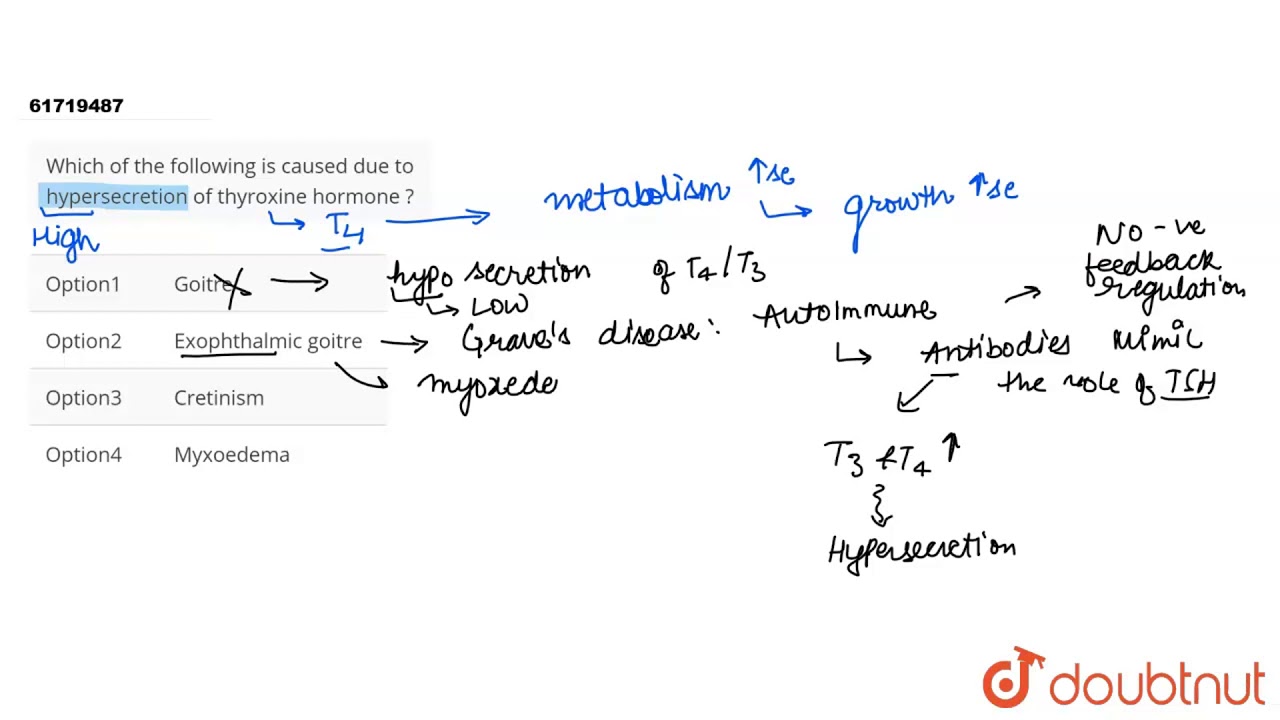 61719487
Which of the following is caused due to
hypersecretion of thyroxine hormone ?
High
T4
metabolism ↑se
growth ↑se
Option1 Goitre
hypo secretion of T4/T3
LOW
Option2 Exophthalmic goitre
Grave's disease:
Autoimmune
No -ve
feedback
regulation
Antibodies mimic
the role of TSH
myoxede
Option3 Cretinism
Option4 Myxoedema
T3 & T4 ↑
Hypersecretion
doubtnut